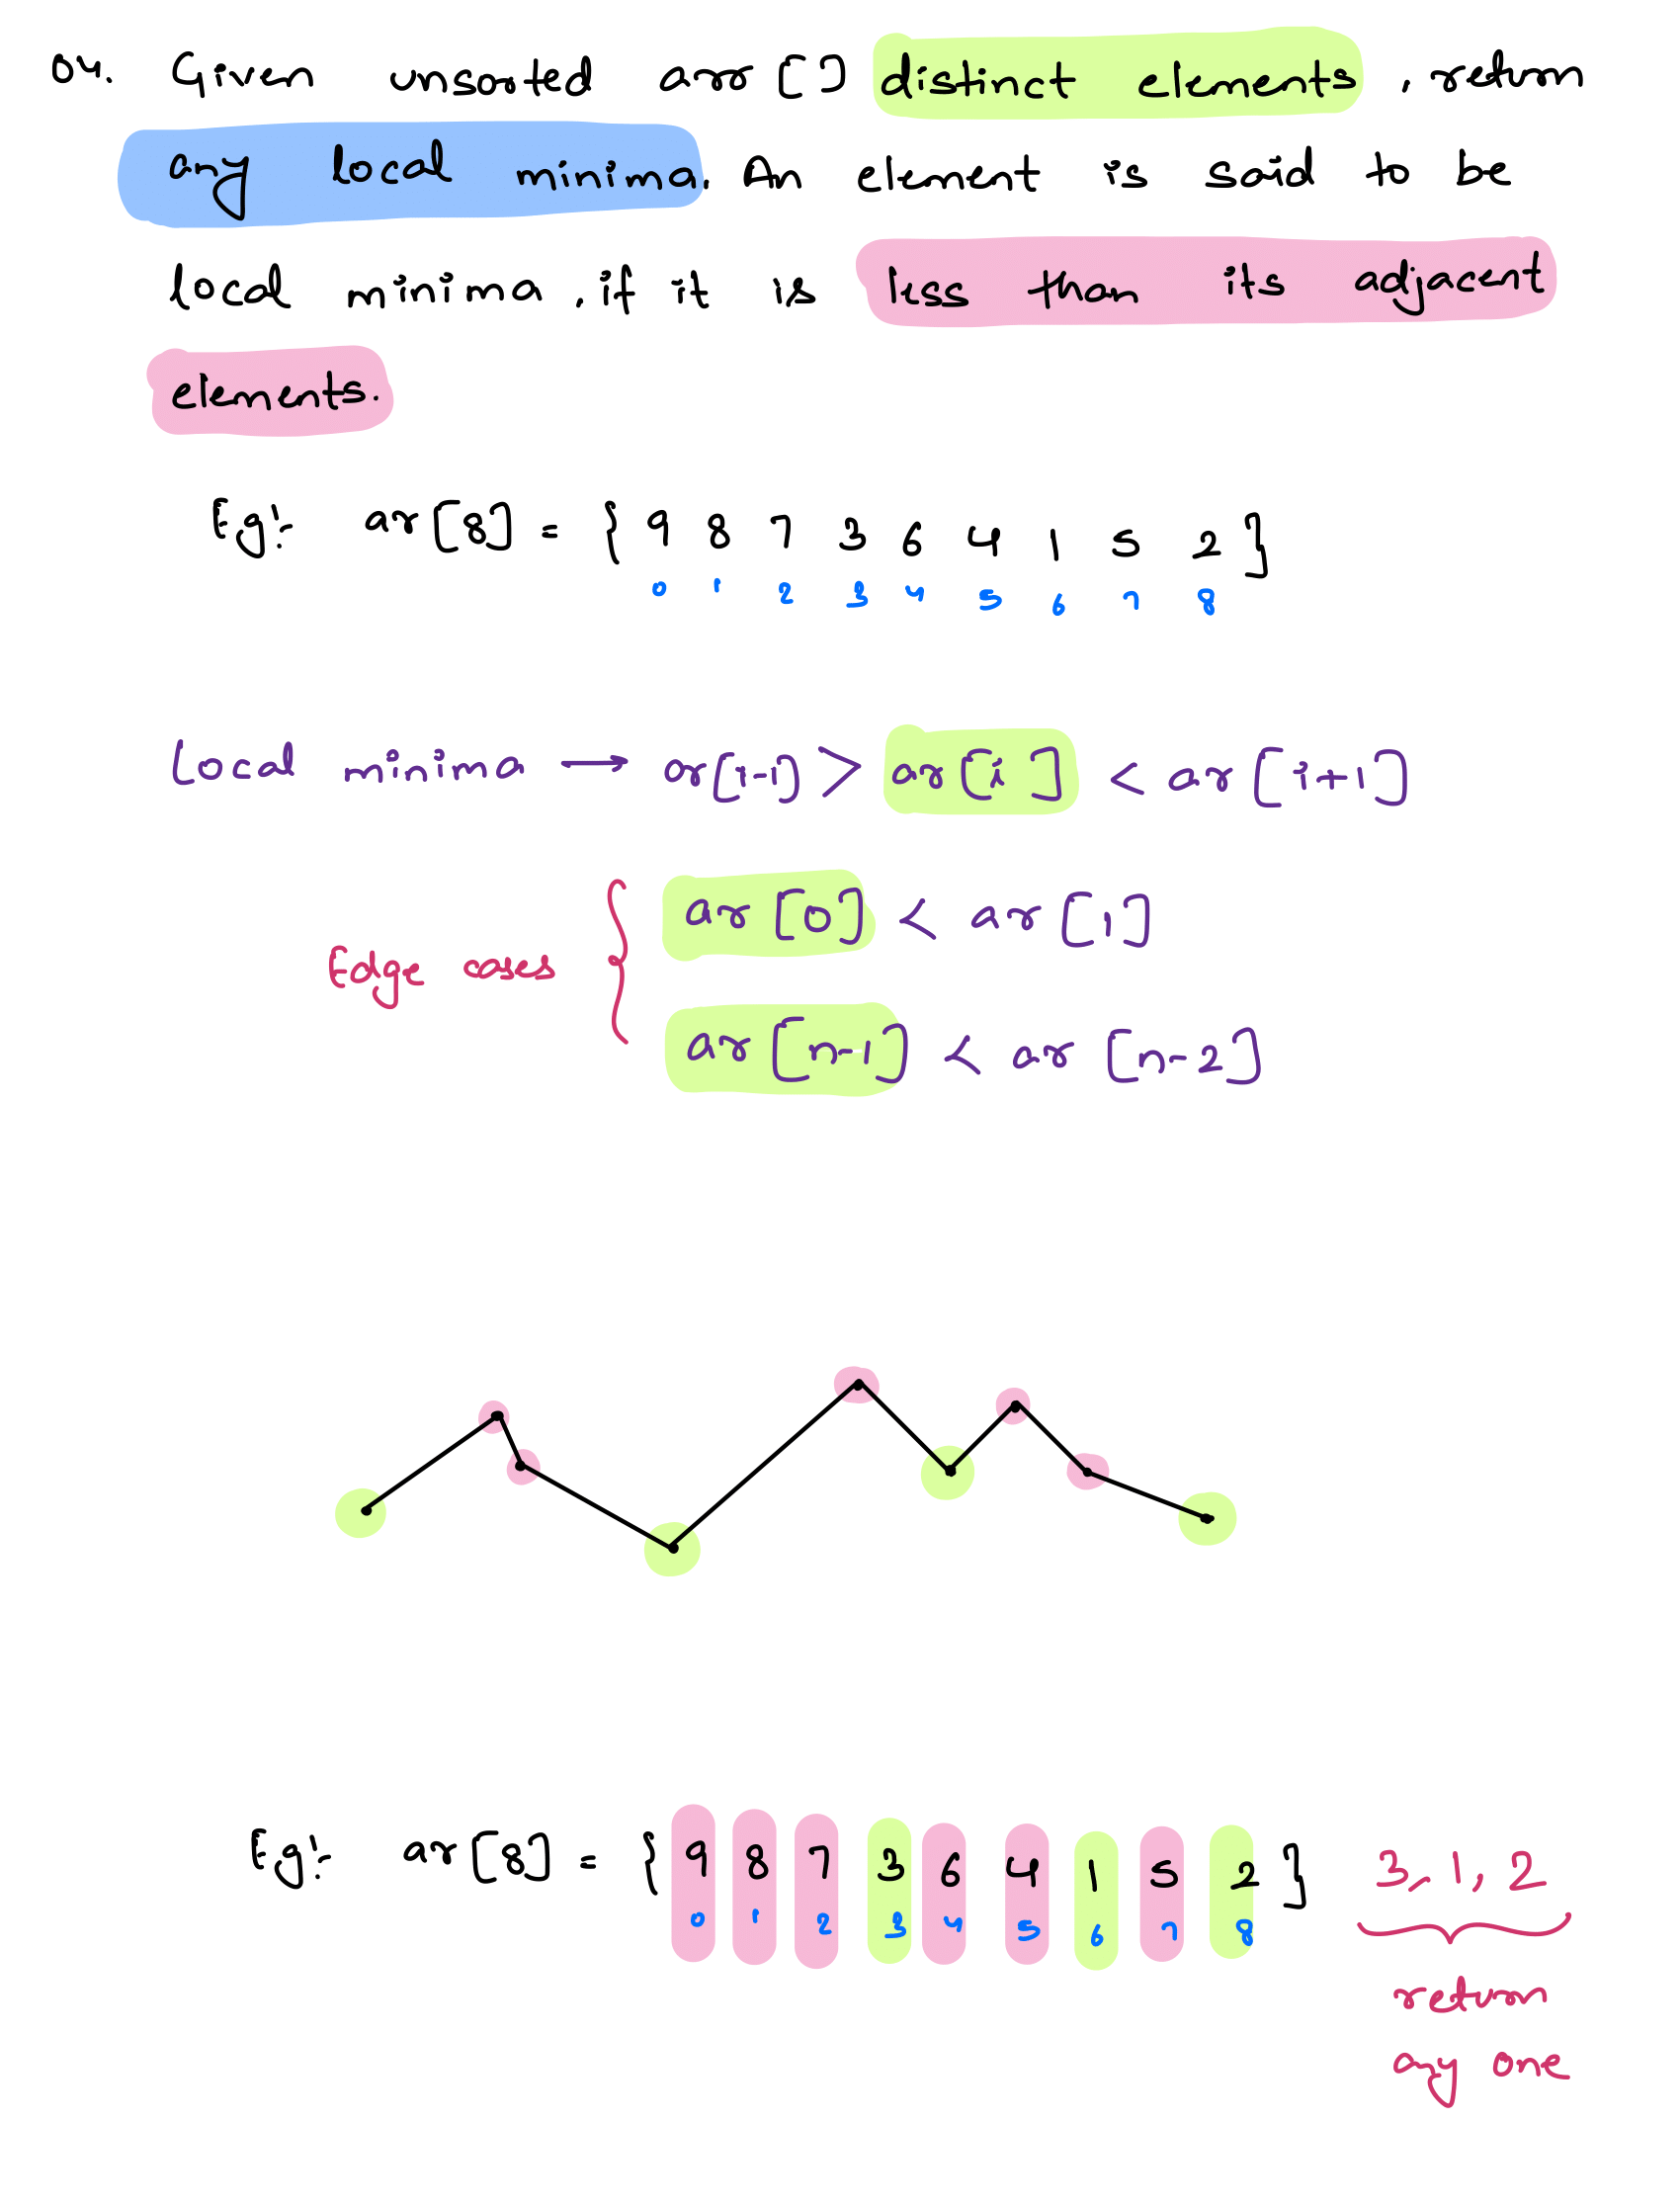 04. Given unsorted arr [] distinct elements, return
any local minima. An element is said to be
local minima, if it is less than its adjacent
elements.
Eg:- ar[8] = { 9 8 7 3 6 4 1 5 2 }
0 1 2 3 4 5 6 7 8
Local minima → ar[i-1] > ar[i] < ar[i+1]
Edge cases { ar[0] < ar[1]
ar[n-1] < ar[n-2]
Eg:- ar[8] = { 9 8 7 3 6 4 1 5 2 } 3, 1, 2
0 1 2 3 4 5 6 7 8
return
any one